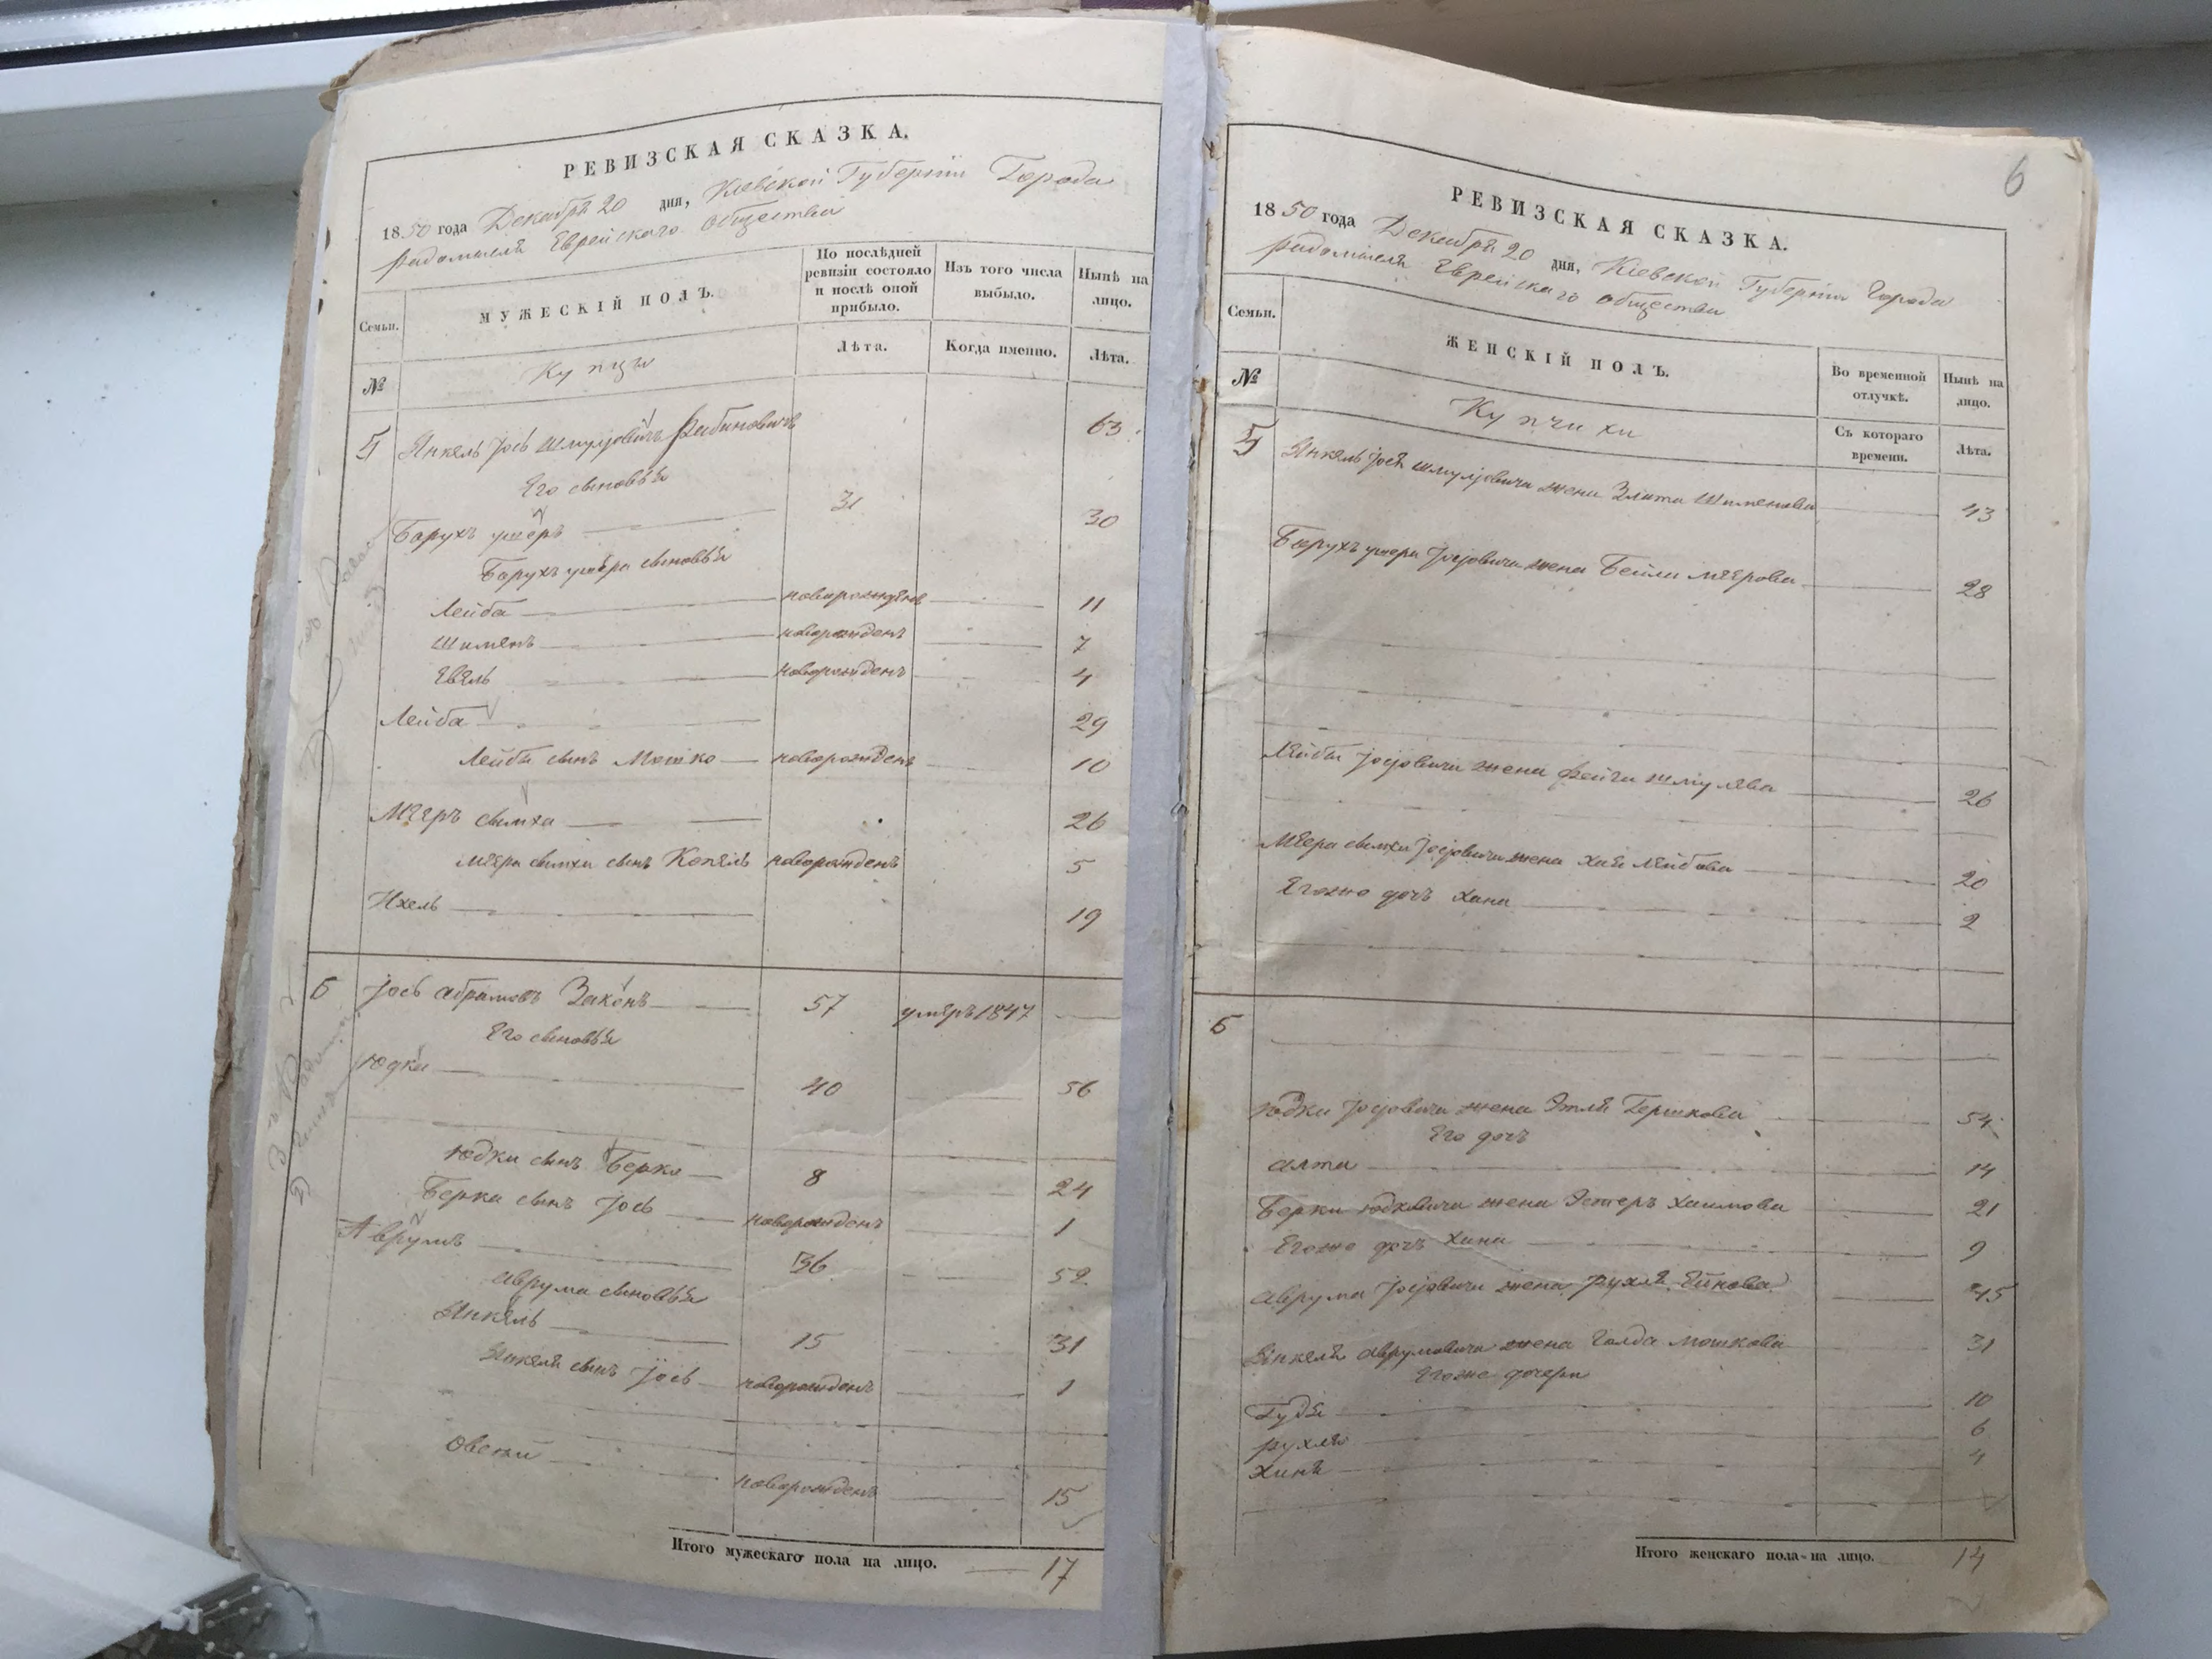 РЕВИЗСКАЯ СКАЗКА.
1850 года Декабря 20 дня, Кіевской Губерніи Города
Радомысля Еврейскаго общества
Семьи.
МУЖЕСКІЙ ПОЛЪ.
По послѣдней ревизіи состояло и послѣ оной прибыло.
Изъ того числа выбыло.
Нынѣ на лицо.
№
Купцы
Лѣта.
Когда именно.
Лѣта.
5 Янкель Іось Шмулјовичъ Рабиновичъ 63
Его сыновья
Барухъ ушеръ 31 30
Барухъ ушера сыновья
Лейба новорожденъ 11
Шименъ новорожденъ 7
Евель новорожденъ 4
Лейба 29
Лейбы сынъ Мошко новорожденъ 10
Мееръ сымха 26
Меера сымхи сынъ Копель новорожденъ 5
Ихель 19
6 Іось абрамовъ Законъ 57 умеръ 1847
Его сыновья
Юдка 40 56
Юдки сынъ Берко 8 24
Берка сынъ Іось новорожденъ 1
Аврумъ 36 52
Аврума сыновья
Янкель 15 31
Янкеля сынъ Іось новорожденъ 1
Овсей новорожденъ 15
Итого мужескаго пола на лицо. 17
6
РЕВИЗСКАЯ СКАЗКА.
1850 года Декабря 20 дня, Кіевской Губерніи Города
Радомысля Еврейскаго общества
Семьи.
ЖЕНСКІЙ ПОЛЪ.
Во временной отлучкѣ.
Нынѣ на лицо.
№
Купчихи
Съ котораго времени.
Лѣта.
5 Янкель Іося Шмулјовича жена Злата Шименова 43
Барухъ ушера Јосјовича жена Бейла Меерова 28
Лейбы Јосјовича жена Фейга Шмулева 26
Меера сымхи Јосјовича жена Хая Лейбова 20
Егоже дочъ Хана 2
6
Юдки Јосјовича жена Этля Гершкова 54
Его дочъ
Алта 14
Берки Юдковича жена Эстеръ Хаимова 21
Егоже дочъ Хана 9
Аврума Јосјовича жена Рухля 45
Янкеля Аврумовича жена Голда Мошкова 31
Егоже дочери
Гудя 10
Рухля 6
Хиня 4
Итого женскаго пола на лицо. 14